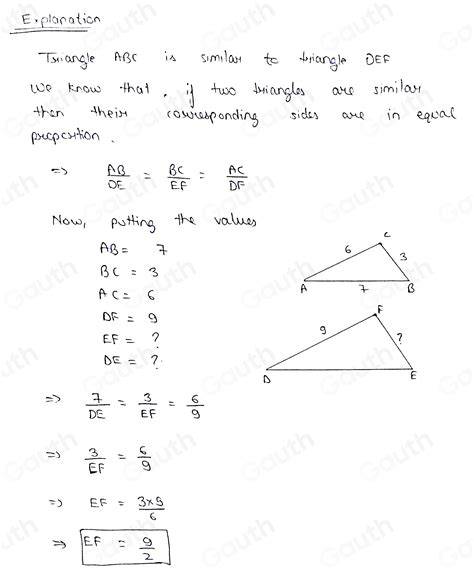 Explanation
Triangle ABC is similar to triangle DEF
We know that, if two triangles are similar
then their corresponding sides are in equal
proportion.
=> AB/DE = BC/EF = AC/DF
Now, putting the values
AB = 7
BC = 3
AC = 6
DF = 9
EF = ?
DE = ?
C
6
3
A
7
B
F
9
?
D
E
=> 7/DE = 3/EF = 6/9
=> 3/EF = 6/9
=> EF = 3×9/6
=> EF = 9/2
Gauth